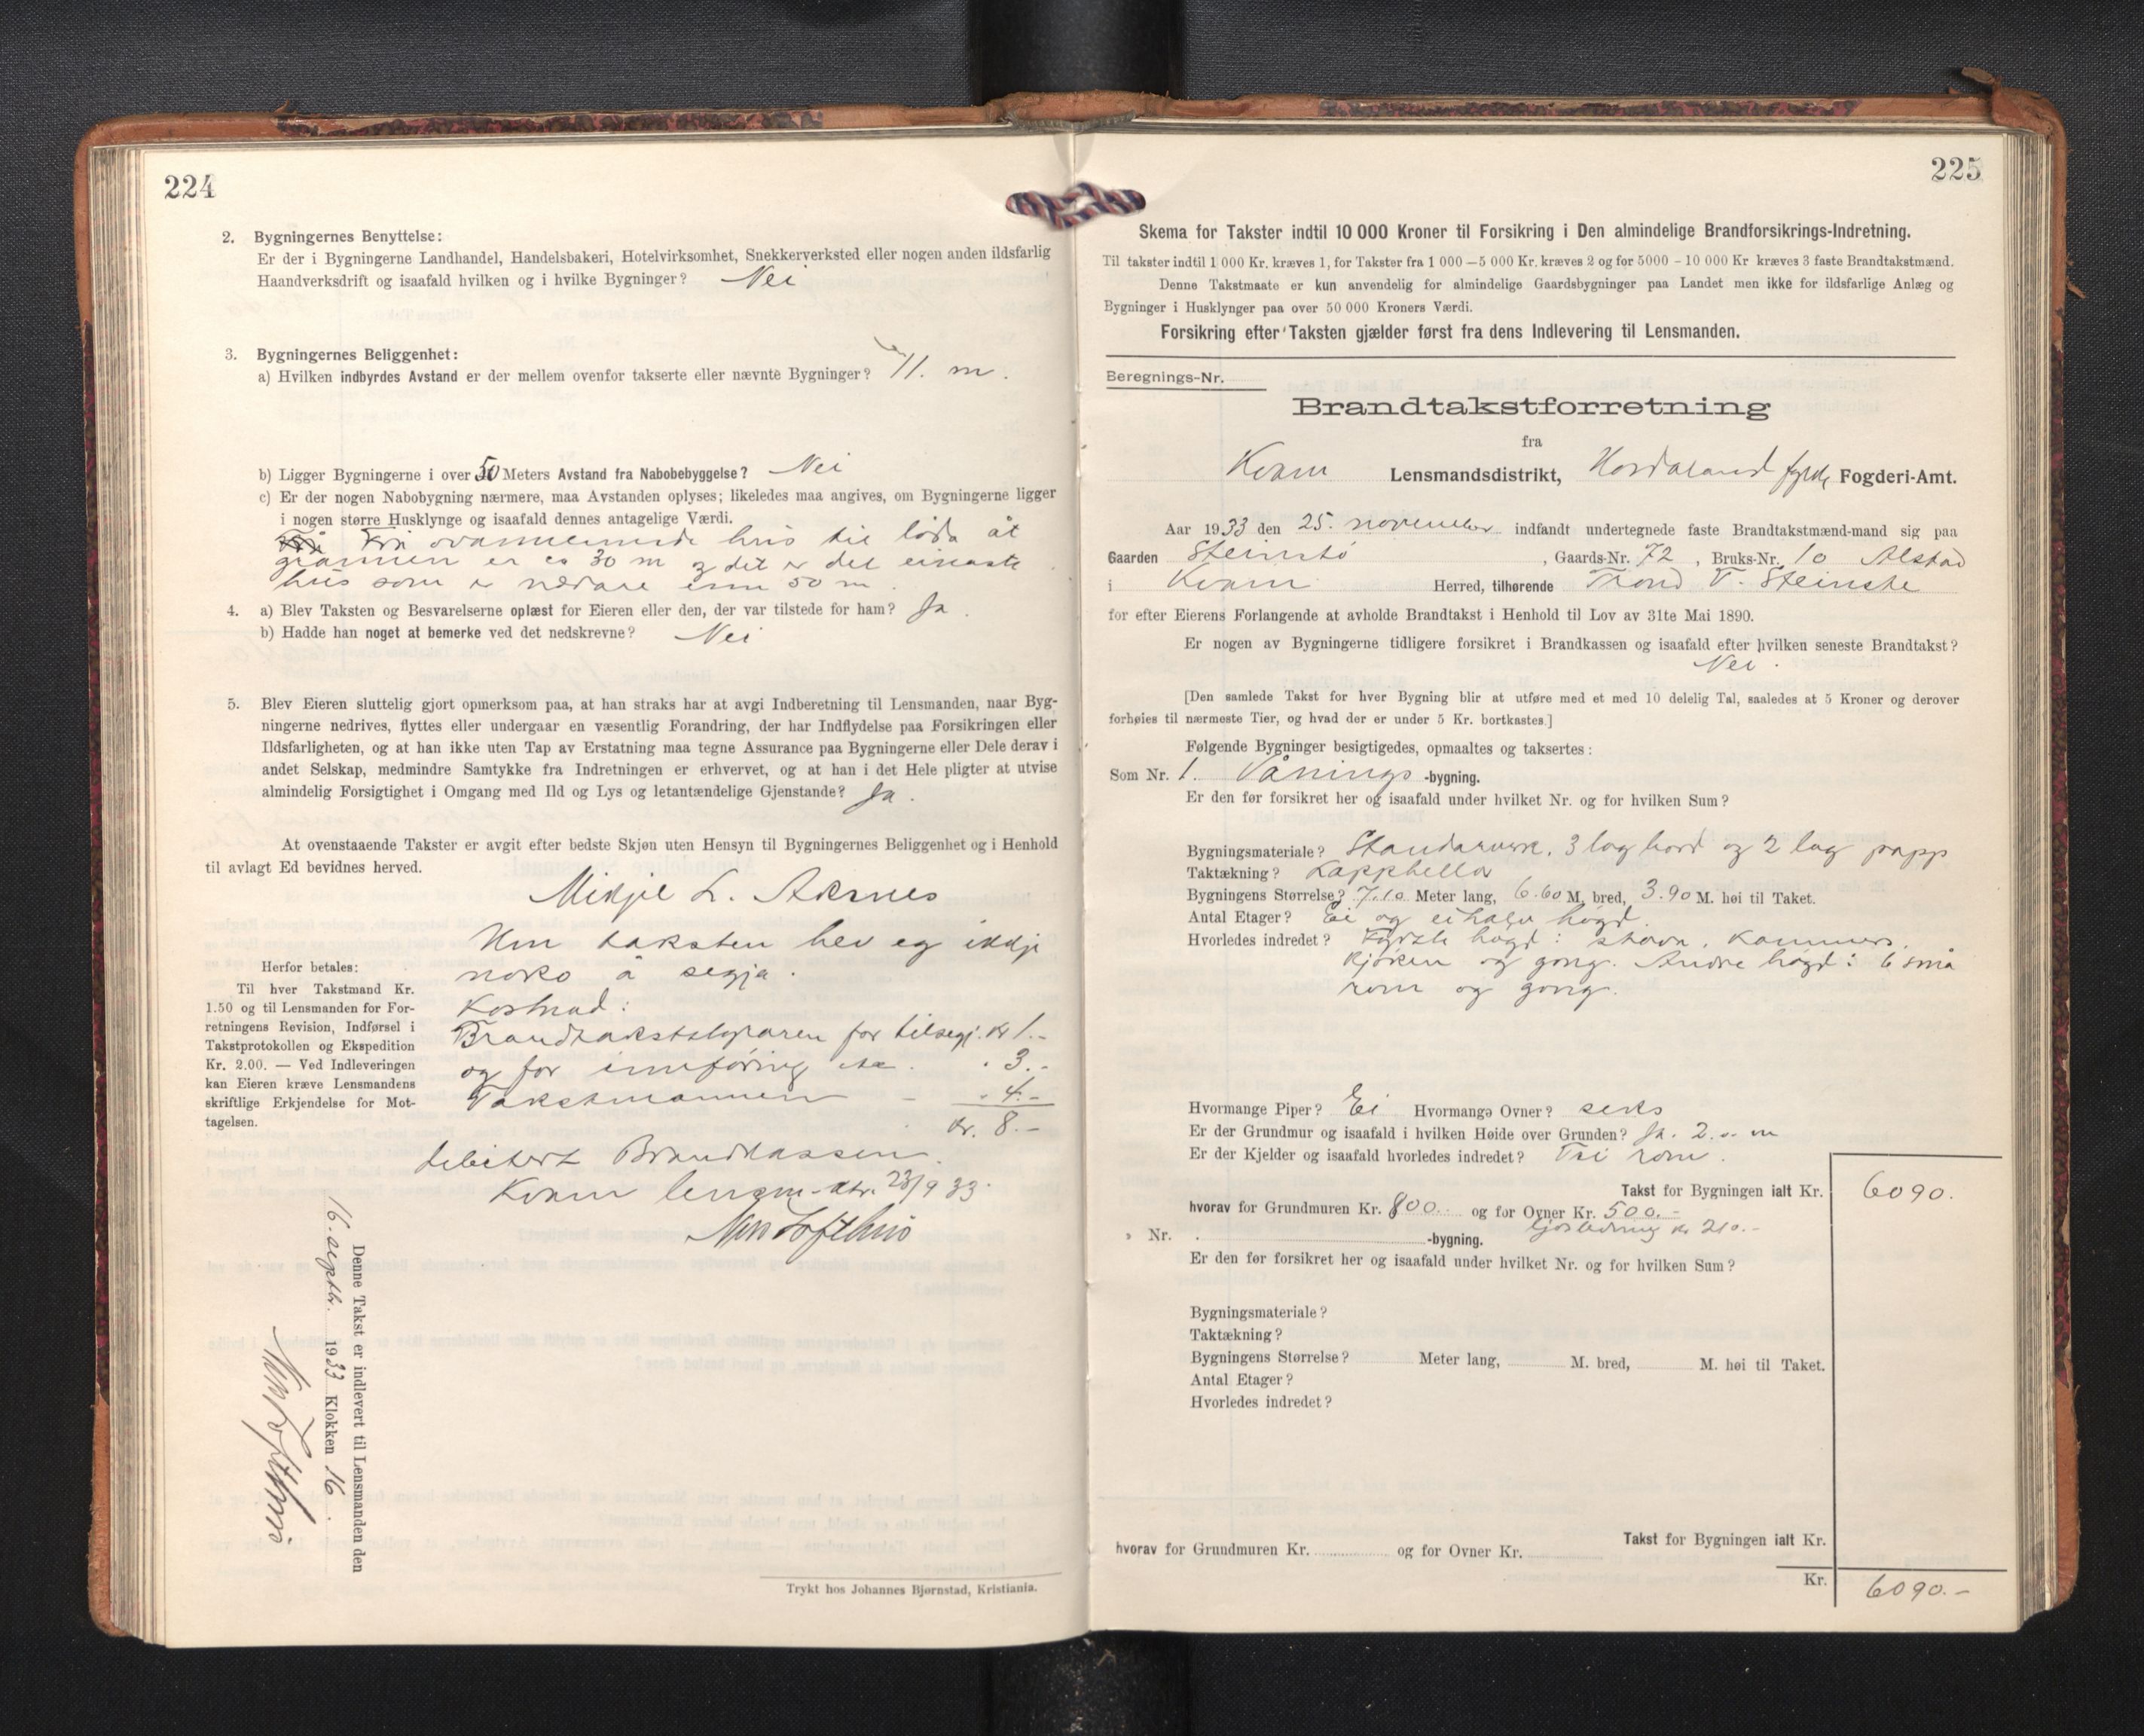 224
2. Bygningernes Benyttelse:
Er der i Bygningerne Landhandel, Handelsbakeri, Hotelvirksomhet, Snekkerverksted eller nogen anden ildsfarlig
Haandverksdrift og isaafald hvilken og i hvilke Bygninger? Nei
3. Bygningernes Beliggenhet:
a) Hvilken indbyrdes Avstand er der mellem ovenfor takserte eller nævnte Bygninger? 11. m.
b) Ligger Bygningerne i over 50 Meters Avstand fra Nabobebyggelse? Nei
c) Er der nogen Nabobygning nærmere, maa Avstanden oplyses; likeledes maa angives, om Bygningerne ligger
i nogen større Husklynge og isaafald dennes antagelige Værdi.
Frå ovannemnde hus til löda åt
grannen er ca 30 m og det er det einaste
hus som er nærare enn 50 m.
4. a) Blev Taksten og Besvarelserne oplæst for Eieren eller den, der var tilstede for ham? Ja.
b) Hadde han noget at bemerke ved det nedskrevne? Nei
5. Blev Eieren sluttelig gjort opmerksom paa, at han straks har at avgi Indberetning til Lensmanden, naar Byg-
ningerne nedrives, flyttes eller undergaar en væsentlig Forandring, der har Indflydelse paa Forsikringen eller
Ildsfarligheten, og at han ikke uten Tap av Erstatning maa tegne Assurance paa Bygningerne eller Dele derav i
andet Selskap, medmindre Samtykke fra Indretningen er erhvervet, og at han i det Hele pligter at utvise
almindelig Forsigtighet i Omgang med Ild og Lys og letantændelige Gjenstande? Ja.
At ovenstaaende Takster er avgit efter bedste Skjøn uten Hensyn til Bygningernes Beliggenhet og i Henhold
til avlagt Ed bevidnes herved.
Mikjel L. Aksnes
Um taksten hev eg ikkje
noko å segja.
Kostnad:
Brandtakstskjønaren for tilsegj. kr 1.-
og for innføring etc. " 3.-
Takstmannen - " 4.-
Kr. 8.-
debitert Brandkassen.
Kvam lensm.ktr. 23/9 33.
Nils Tofthus
Herfor betales:
Til hver Takstmand Kr.
1.50 og til Lensmanden for For-
retningens Revision, Indførsel i
Takstprotokollen og Ekspedition
Kr. 2.00. — Ved Indleveringen
kan Eieren kræve Lensmandens
skriftlige Erkjendelse for Mot-
tagelsen.
Denne Takst er indlevert til Lensmanden den
16. septbr. 1933 Klokken 16.
Nils Tofthus
Trykt hos Johannes Bjørnstad, Kristiania.
225
Skema for Takster indtil 10 000 Kroner til Forsikring i Den almindelige Brandforsikrings-Indretning.
Til takster indtil 1 000 Kr. kræves 1, for Takster fra 1 000 — 5 000 Kr. kræves 2 og for 5000 - 10 000 Kr kræves 3 faste Brandtakstmænd.
Denne Takstmaate er kun anvendelig for almindelige Gaardsbygninger paa Landet men ikke for ildsfarlige Anlæg og
Bygninger i Husklynger paa over 50 000 Kroners Værdi.
Forsikring efter Taksten gjælder først fra dens Indlevering til Lensmanden.
Beregnings-Nr.
Brandtakstforretning
fra
Kvam Lensmandsdistrikt, Hordaland fylde Fogderi-Amt.
Aar 1933 den 25. november indfandt undertegnede faste Brandtakstmænd-mand sig paa
Gaarden Steinstø, Gaards-Nr. 72, Bruks-Nr. 10 Alstad
i Kvam Herred, tilhørende Trond T. Steinstø
for efter Eierens Forlangende at avholde Brandtakst i Henhold til Lov av 31te Mai 1890.
Er nogen av Bygningerne tidligere forsikret i Brandkassen og isaafald efter hvilken seneste Brandtakst?
Nei.
[Den samlede Takst for hver Bygning blir at utføre med et med 10 delelig Tal, saaledes at 5 Kroner og derover
forhøies til nærmeste Tier, og hvad der er under 5 Kr. bortkastes.]
Følgende Bygninger besigtigedes, opmaaltes og taksertes:
Som Nr. 1. Vånings-bygning.
Er den før forsikret her og isaafald under hvilket Nr. og for hvilken Sum?
Bygningsmateriale? Standarverk, 3 lag bord og 2 lag papp
Taktækning? Lapphella
Bygningens Størrelse? 7.10 Meter lang, 6.60 M. bred, 3.90 M. høi til Taket.
Antal Etager? Ei og ei halv høgd.
Hvorledes indredet? Fyrste høgd: stova, kammers,
kjøken og gong. Andre høgd: 6 små
rom og gong.
Hvormange Piper? Ei Hvormange Ovner? seks
Er der Grundmur og isaafald i hvilken Høide over Grunden? Ja. 2.00 m
Er der Kjelder og isaafald hvorledes indredet? Tri rom.
Takst for Bygningen ialt Kr. 6090.
hvorav for Grundmuren Kr. 800.- og for Ovner Kr. 500.-
ljosledning kr 210.-
» Nr. -bygning.
Er den før forsikret her og isaafald under hvilket Nr. og for hvilken Sum?
Bygningsmateriale?
Taktækning?
Bygningens Størrelse? Meter lang, M. bred, M. høi til Taket.
Antal Etager?
Hvorledes indredet?
Takst for Bygningen ialt Kr.
hvorav for Grundmuren Kr. og for Ovner Kr.
Kr. 6090.-